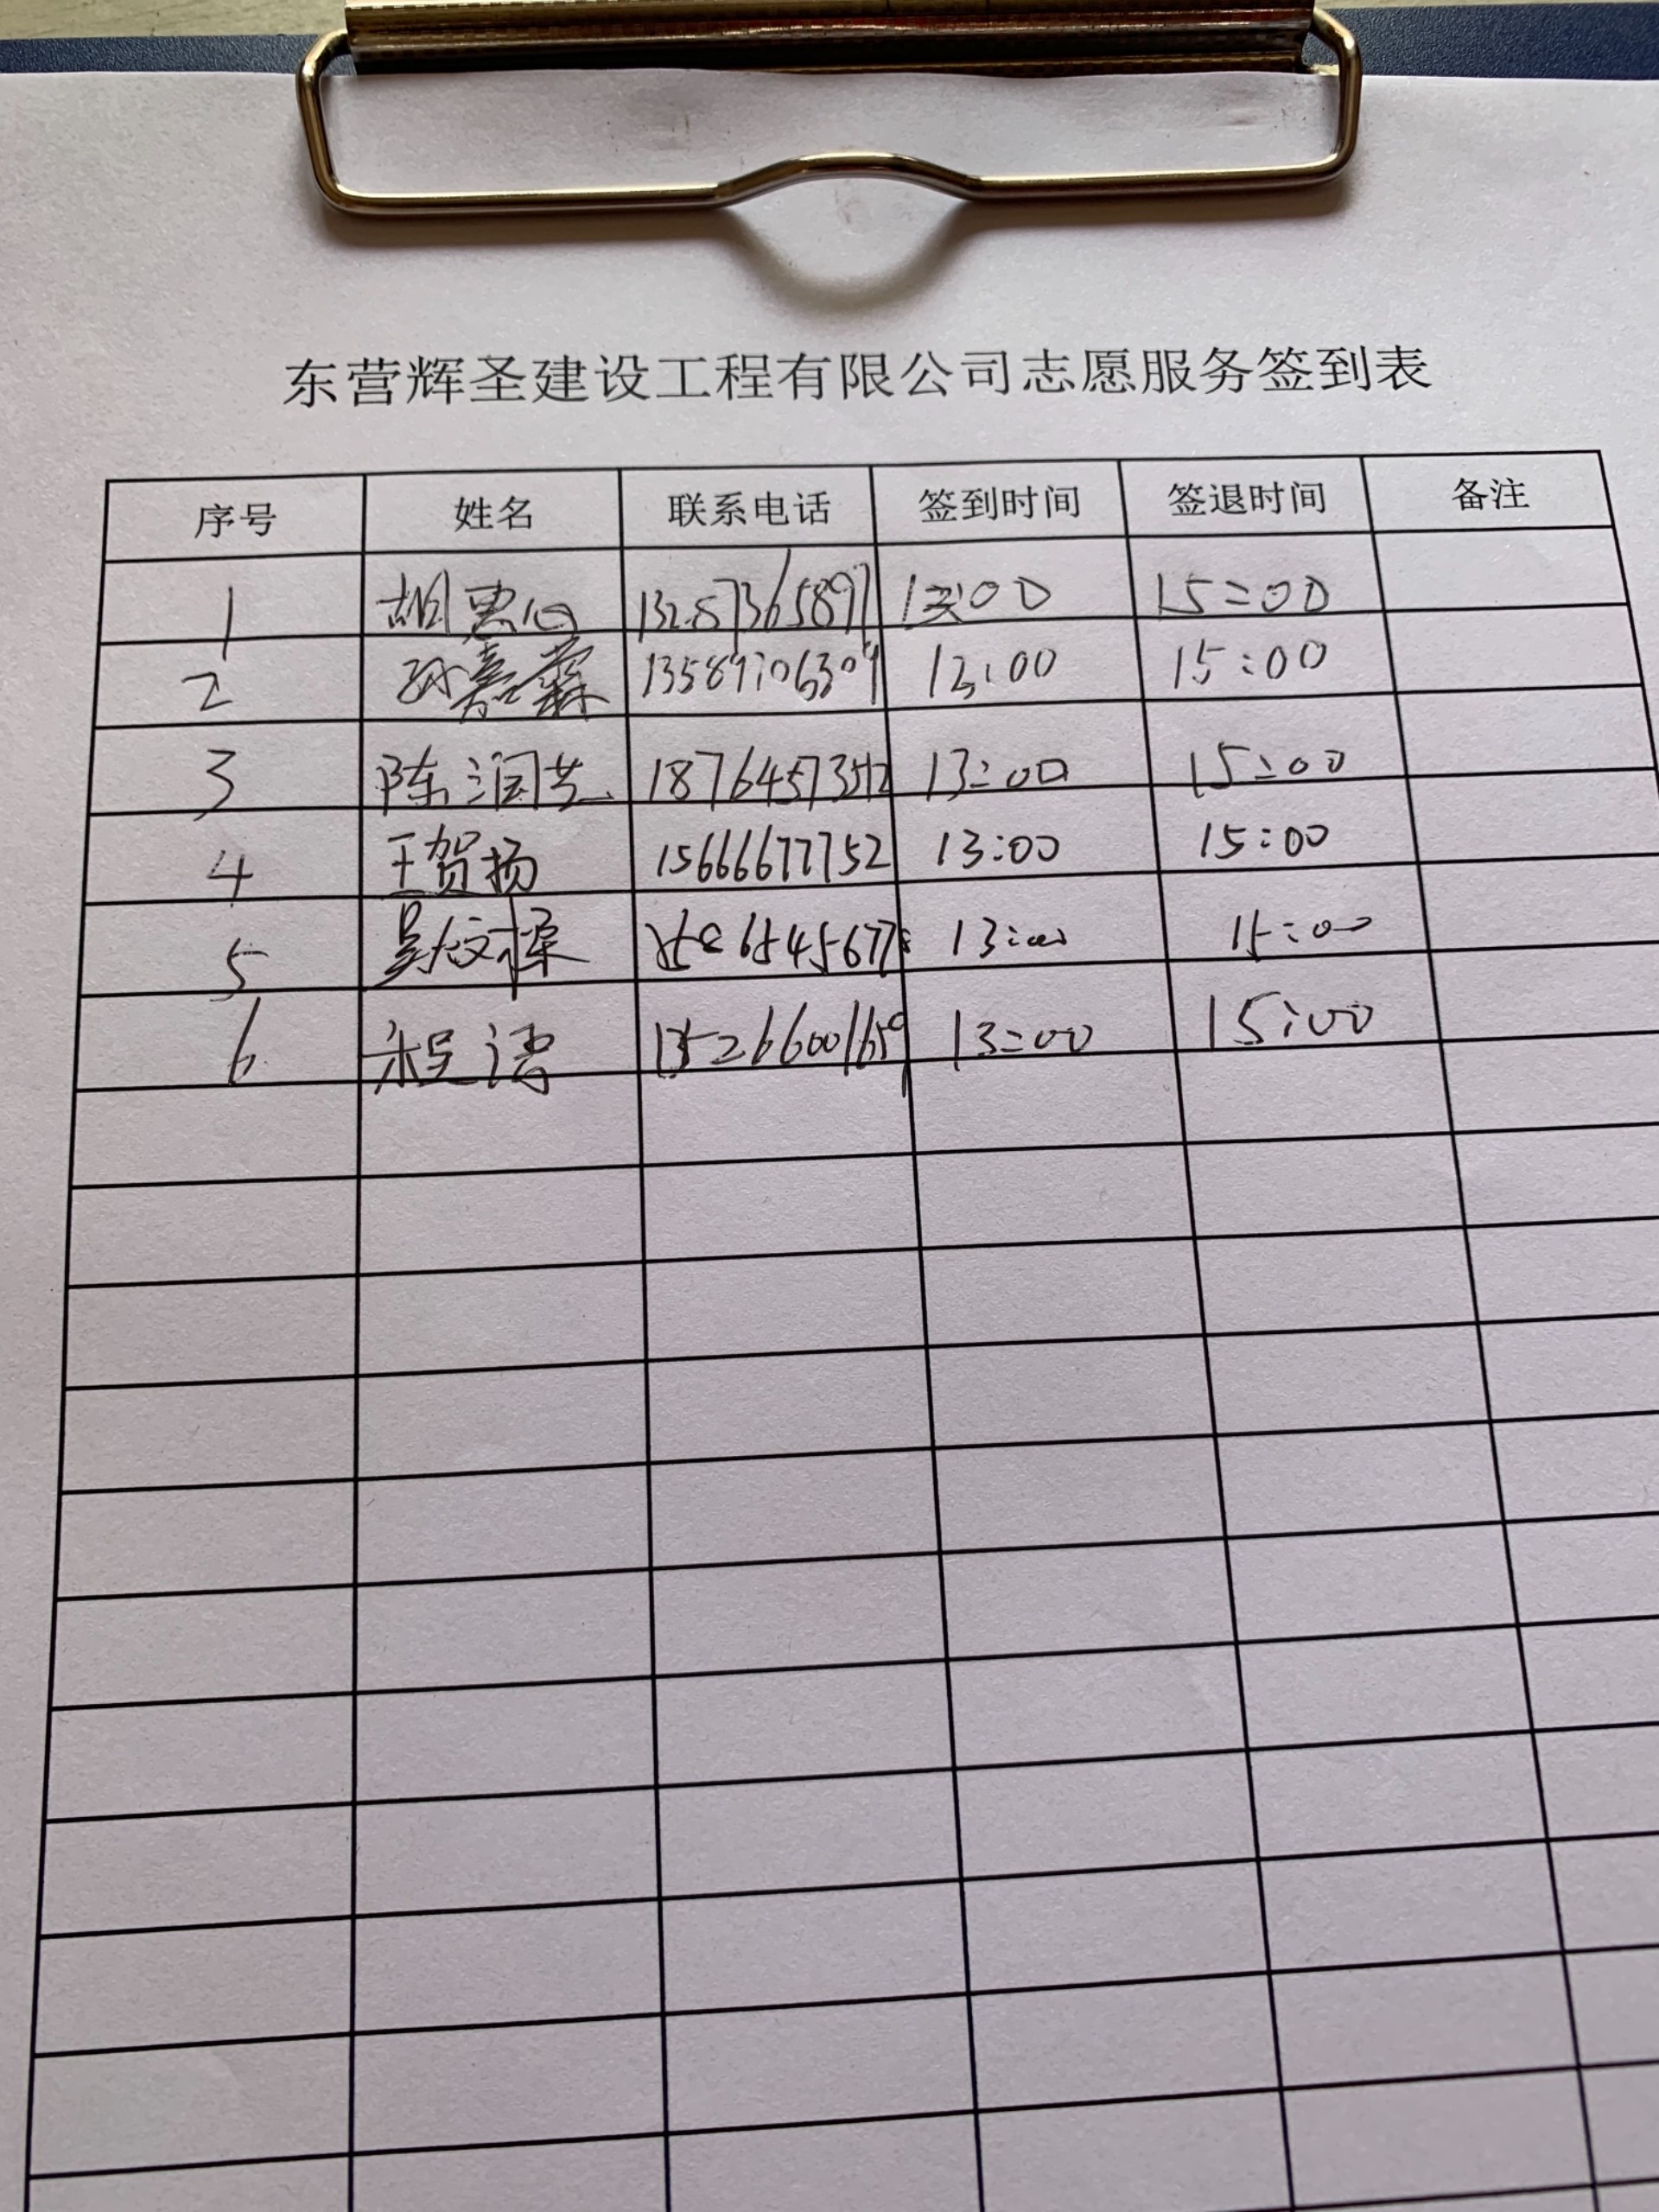 东营辉圣建设工程有限公司志愿服务签到表
序号 姓名 联系电话 签到时间 签退时间 备注
1 胡 13287365897 13:00 15:00
2 孙嘉霖 13589706309 13:00 15:00
3 陈润芝 13:00 15:00
4 王贺扬 15666677752 13:00 15:00
5 吴文栋 13:00 15:00
6 程 13:00 15:00